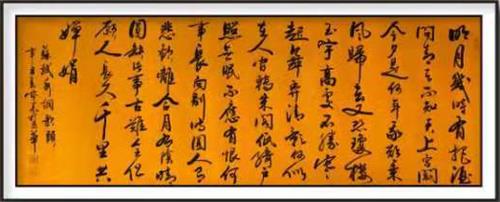 明月幾時有把酒
問青天不知天上宮闕
今夕是何年我欲乘
風歸去又恐瓊樓
玉宇高處不勝寒
起舞弄清影何似
在人間轉朱閣低綺戶
照無眠不應有恨何
事長向別時圓人有
悲歡離合月有陰晴
圓缺此事古難全但
願人長久千里共
嬋娟
蘇軾水調歌頭